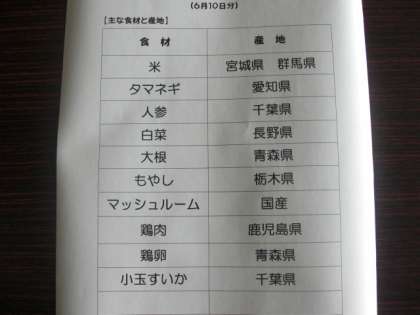 (6月10日分)
[主な食材と産地]
食 材 産 地
米 宮城県 群馬県
タマネギ 愛知県
人参 千葉県
白菜 長野県
大根 青森県
もやし 栃木県
マッシュルーム 国産
鶏肉 鹿児島県
鶏卵 青森県
小玉すいか 千葉県